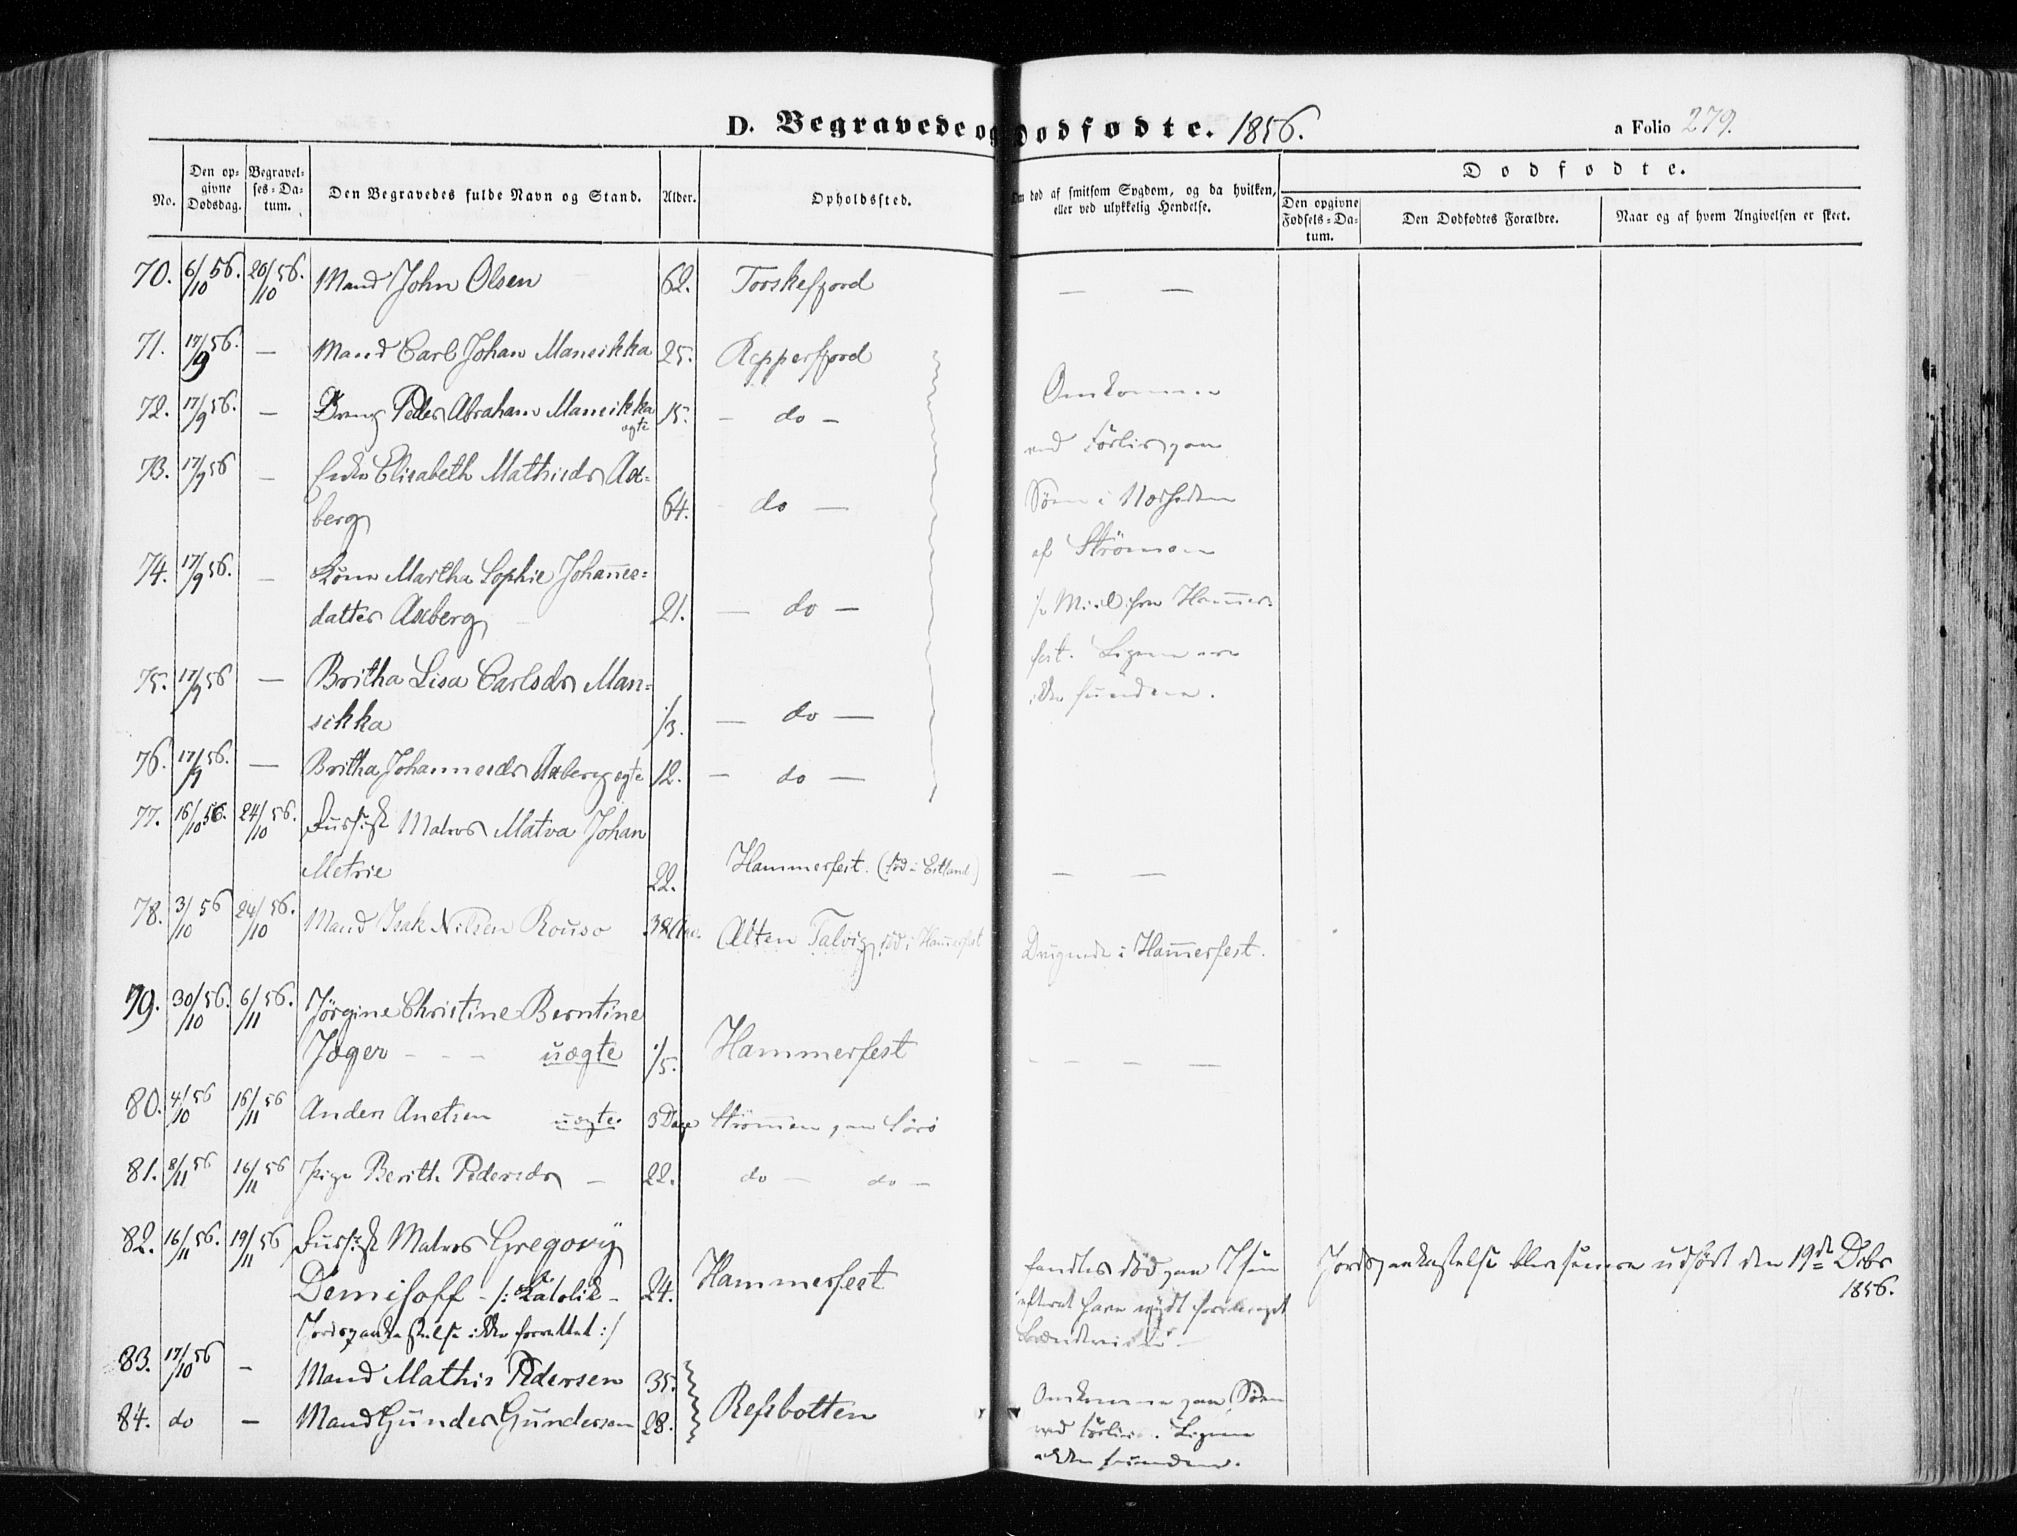 D. Begravede og Dødfødte. 1856.
a Folio 279.
No.
Den opgivne Dødsdag.
Begravelses-Datum.
Den Begravedes fulde Navn og Stand.
Alder.
Opholdssted.
Om død af smitsom Sygdom, og da hvilken, eller ved ulykkelig Hendelse.
Dødfødte.
Den opgivne Fødsels-Datum.
Den Dødfødtes Forældre.
Naar og af hvem Angivelsen er skeet.
70. 6/10 56. 20/10 56. Mand John Olsen 62. Torskefjord — —
71. 17/9 56. — Mand Carl Johan Mansikka 25. Repperfjord
72. 17/9 56. — Dreng Peder Abraham Mansikka ægte 15. — do —
73. 17/9 56 — Enke Elisabeth Mathisdr Ax=
berg 64. do —
74. 17/9 56. — Kone Martha Sophie Johannes=
datter Axberg 21. — do —
75. 17/9 56 — Britha Lisa Carlsdr Man=
sikka 1/3. — do —
76. 17/9 56. — Britha Johannesdr Axberg ægte 12. — do —
Omkomne
ved Forliis paa
Søen i Nærheden
af Strømmen
1/2 Miil fra Hammer-
fest. Ligene ere
ikke fundne.
77. 16/10 56. 24/10 56. Russisk Matros Matva Johan
Metrie 22. Hammerfest. (fød i Estland) — —
78. 3/10 56 24/10 56. Mand Isak Nilsen Rouso 38 Aar. Alten Talvig, død i Hammerfest Druknede i Hammerfest.
79. 30/10 56. 6/11 56. Jørgine Christine Berntine
Jæger - - - uægte 1/5. Hammerfest — — — —
80. 4/10 56 16/11 56 Anders Anetsen uægte. 3 Dage Strömmen paa Sörö
81. 8/11 56 16/11 56 Pige Berith Pedersdr — 22. do — do —
82. 16/11 56. 19/11 56 Russisk Matros Gregorij
Demisoff - /: Katolik - 24. Hammerfest
Jordpaakastelse ikke forrettet :/
fandtes død paa Isen
efterat have nydt formeget
Brændeviin -
Jordspaakastelse blev senere udført den 19de Decbr
1856.
83. 17/10 56 — Mand Mathis Pedersen 35.
84. do — Mand Gunder Gundersen 28. Refsbotten
Omkomne paa Søen
ved Forliis. Ligene
ikke fundne.